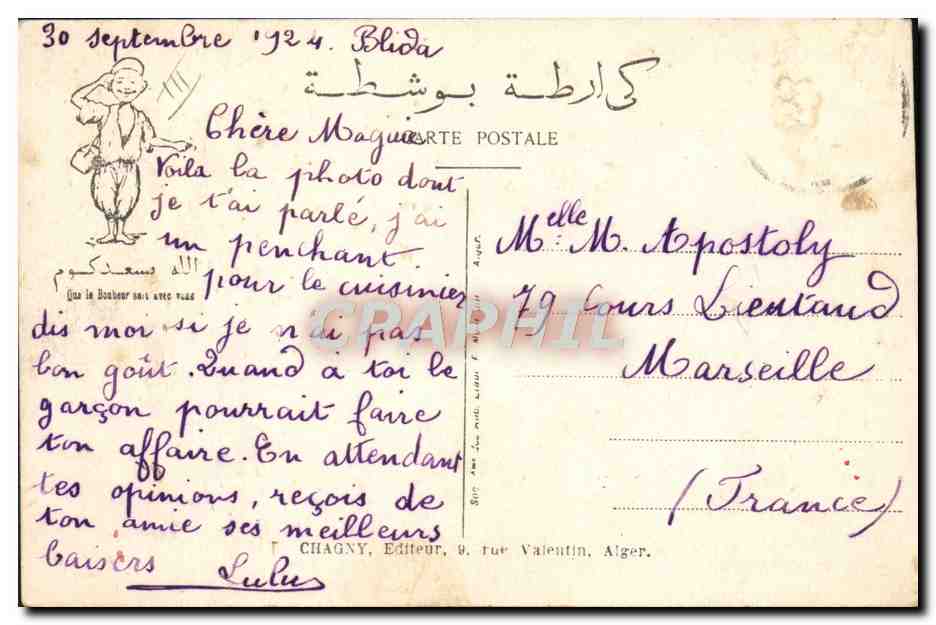 30 septembre 1924. Blida
كارطة بوسطة
CARTE POSTALE
Chère Maguie
Voila la photo dont
je t'ai parlé, j'ai
un penchant
pour le cuisinier
الله يسعدكوم
Que le Bonheur soit avec vous
dis moi si je n'ai pas
bon goût. Quand à toi le
garçon pourrait faire
ton affaire. En attendant
tes opinions, reçois de
ton amie ses meilleurs
baisers Lulu
Melle M. Apostoly
79 Cours Lieutaud
Marseille
(France)
CHAGNY, Editeur, 9, rue Valentin, Alger.
CPARPHIL